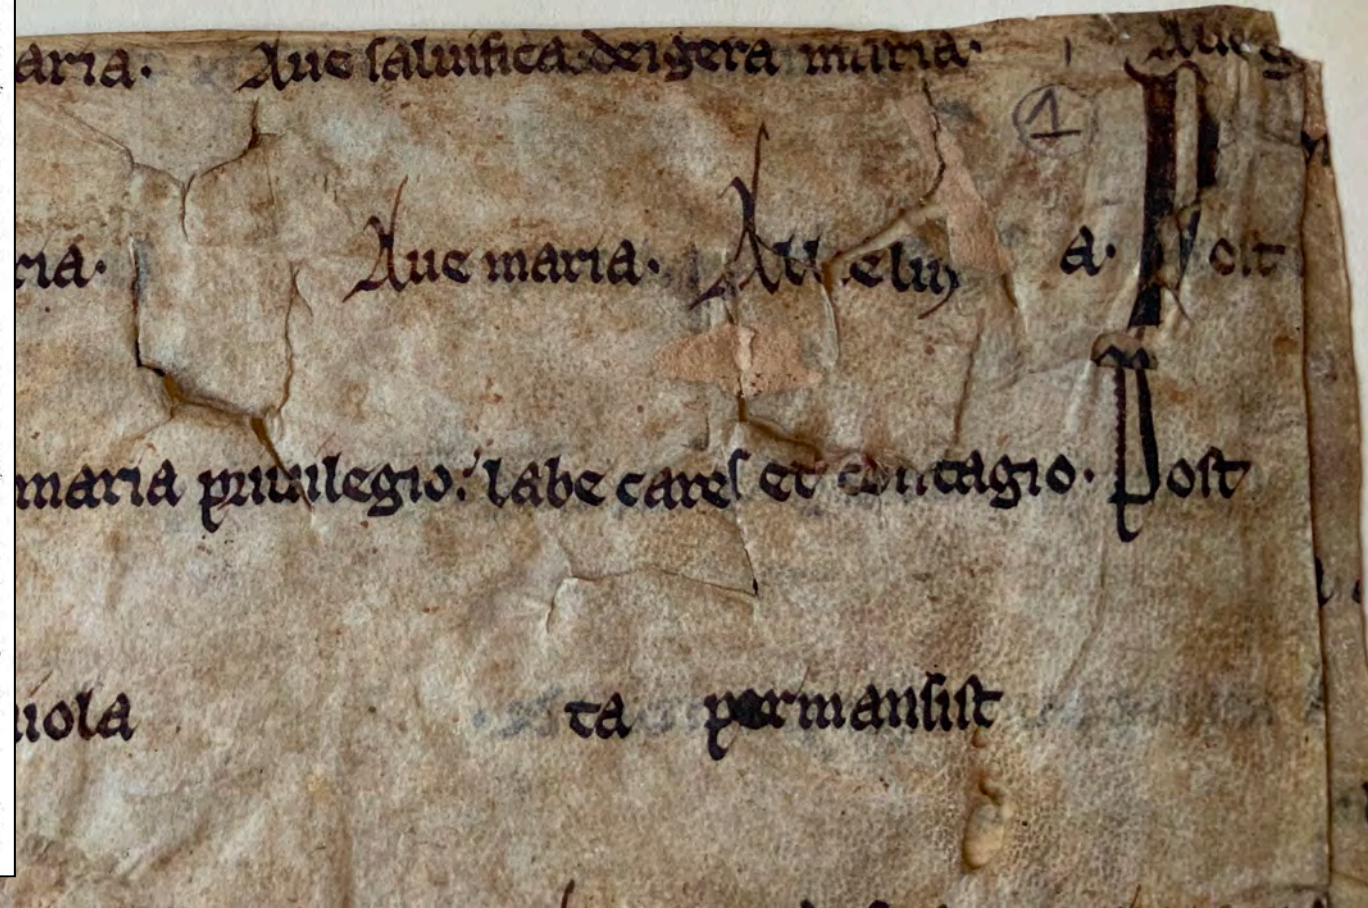 aria. Aue saluifica deigera maria. Aue g
1
ria. Aue maria. a. Post
maria priuilegio: labe cares et contagio. Post
uiola ta permansist